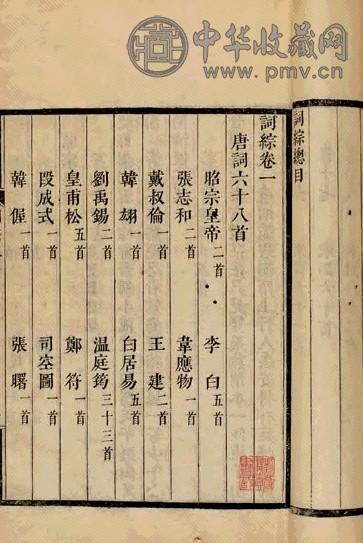 中华收藏网
www.pmv.cn
詞綜總目
詞綜卷一
唐詞六十八首
昭宗皇帝 二首 李白 五首
張志和 二首 韋應物 一首
戴叔倫 一首 王建 二首
韓翃 一首 白居易 五首
劉禹錫 二首 温庭筠 三十三首
皇甫松 五首 鄭符 一首
段成式 一首 司空圖 一首
韓偓 一首 張曙 一首